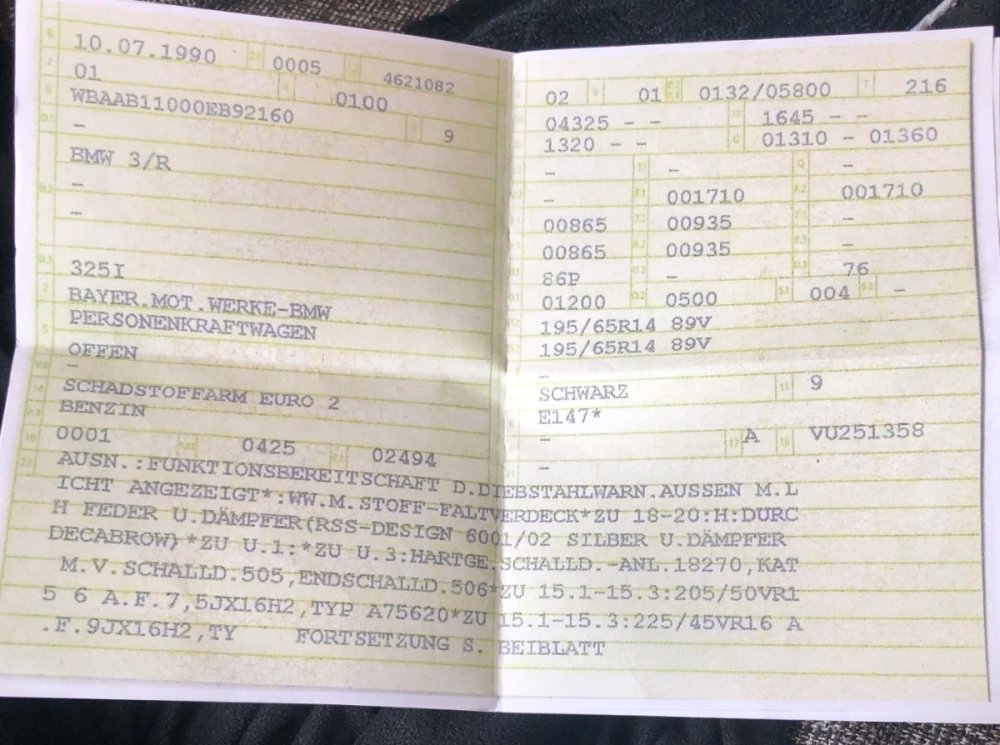 10.07.1990 0005 4621082
01 0100
WBAAB11000EB92160
- 9
BMW 3/R
-
-
325I
BAYER.MOT.WERKE-BMW
PERSONENKRAFTWAGEN
OFFEN
-
SCHADSTOFFARM EURO 2
BENZIN
0001 0425 02494
02 01 0132/05800 216
04325 - - 1645 - -
1320 - - 01310 - 01360
- - -
- 001710 001710
00865 00935 -
00865 00935 -
86P - 76
01200 0500 004 -
195/65R14 89V
195/65R14 89V
-
SCHWARZ 9
E147*
- A VU251358
-
AUSN.:FUNKTIONSBEREITSCHAFT D.DIEBSTAHLWARN.AUSSEN M.L
ICHT ANGEZEIGT*:WW.M.STOFF-FALTVERDECK*ZU 18-20:H:DURC
H FEDER U.DÄMPFER(RSS-DESIGN 6001/02 SILBER U.DÄMPFER
DECABROW)*ZU U.1:*ZU U.3:HARTGE.SCHALLD.-ANL.18270,KAT
M.V.SCHALLD.505,ENDSCHALLD.506*ZU 15.1-15.3:205/50VR1
5 6 A.F.7,5JX16H2,TYP A75620*ZU 15.1-15.3:225/45VR16 A
.F.9JX16H2,TY FORTSETZUNG S. BEIBLATT